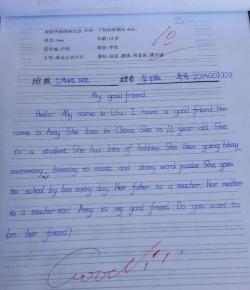 姓名:Amy 年龄:12岁
居住地:中国 职业:学生
My good friend
Hello! My name is Lili. I have a good friend. Her
name is Amy. She lives in China. She is 12 year old. She
is a student. She has lots of hobbies. She likes going hiking,
swimming, listening to music and doing word puzzles. She goes
to school by bus every day. Her father is a teacher. Her mother
is a teacher too! Amy is my good friend. Do you want to
be her friend?
Good!!